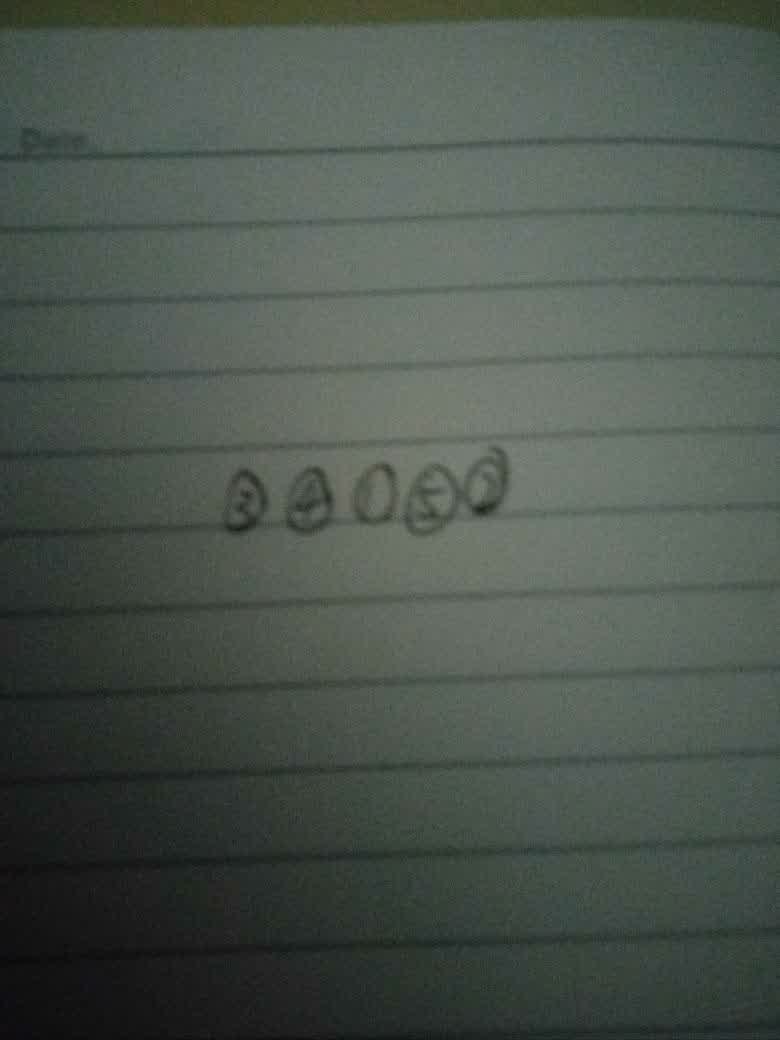 Date
③ ④ ① ⑤ ②